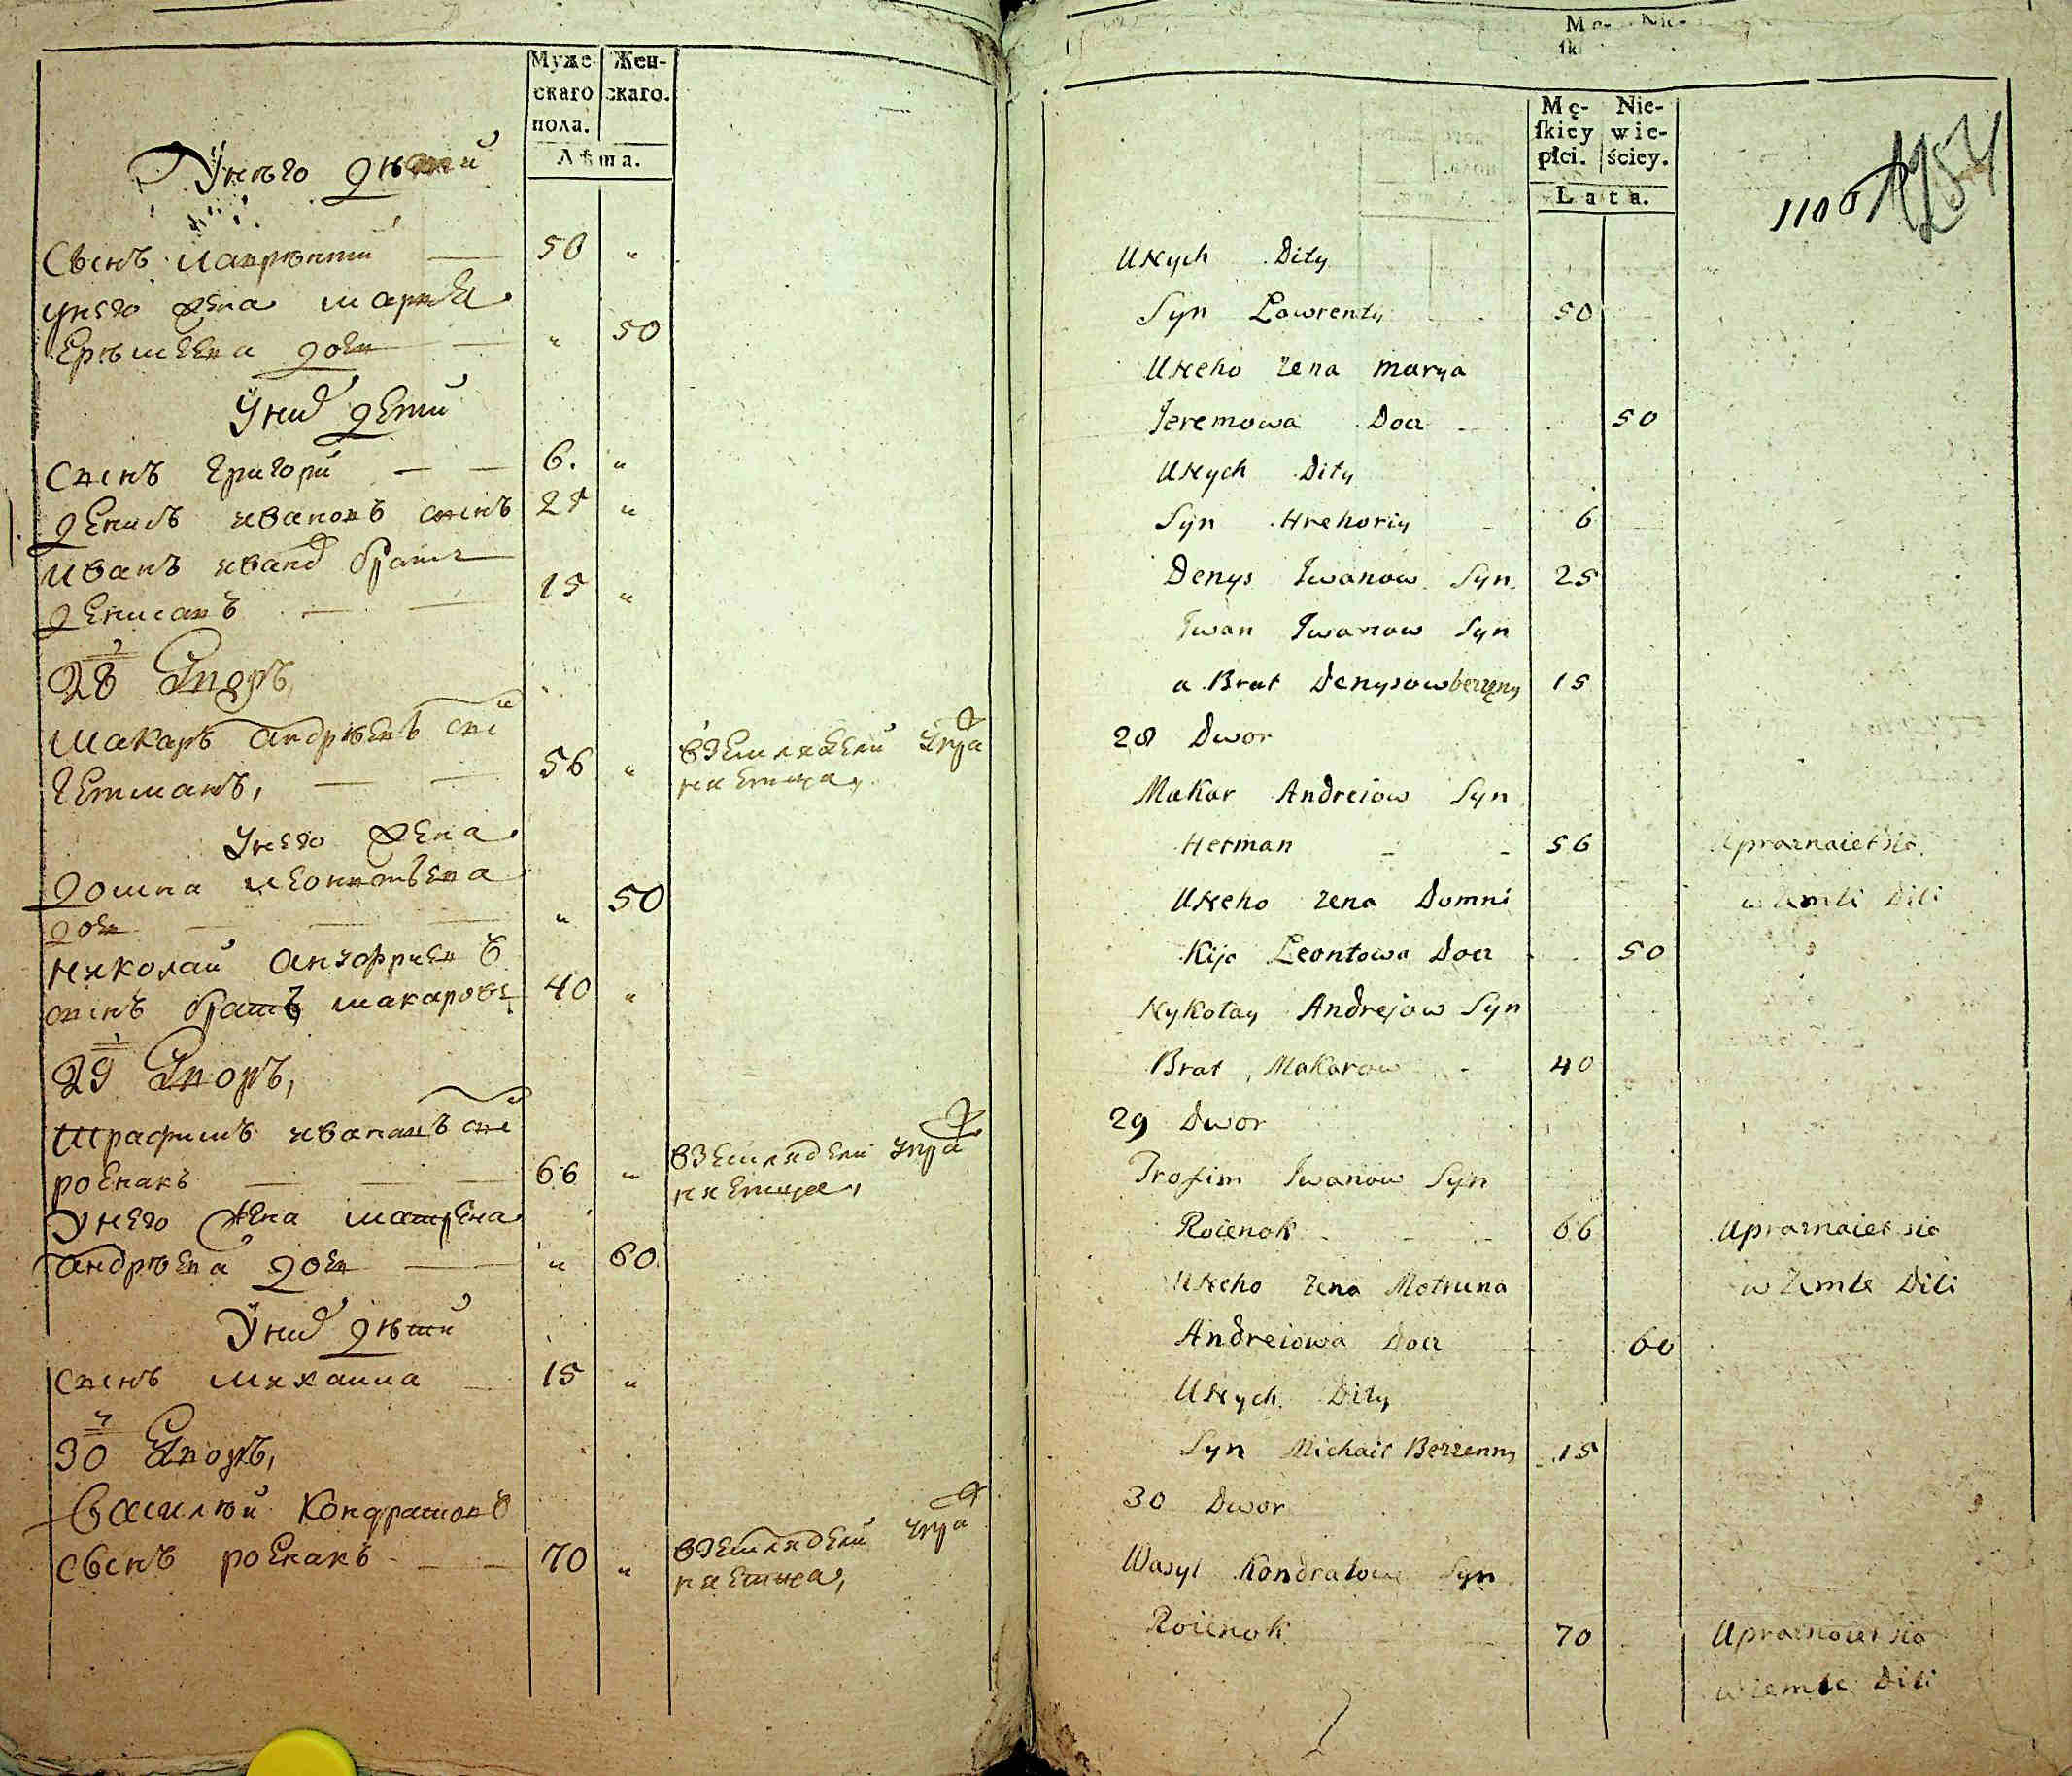 Муже- Жен-
скаго скаго.
пола.
Лѣта.
У него дѣтей
Сынъ Лаврѣнтий 50 "
у него жена Марья
Ерѣмеева дочь " 50
У них дети
Сынъ Григори 6. "
Денисъ Ивановъ сынъ 25 "
Иванъ Иванов братъ
Денисовъ 15 "
28 Дворъ,
Макаръ Андрѣевъ сын
Гетманъ, 56 "
в земледели упра
няетца,
У него жена
Домна Леонтьева
дочь " 50
Николай Андреевъ
сынъ братъ Макаровъ 40 "
29 Дворъ,
Трафимъ Ивановъ сын
роенакъ 66 "
в земледели упра
няетца,
У него жена Матрена
Андрѣева дочь " 60
У них дѣти
Сынъ Михаила 15 "
30 Дворъ,
Василѣй Кондратовъ
сынъ роенакъ 70 "
в земледели упра
няетца,
Mę- Nie-
ſkiey wie-
płci. ściey.
Lata.
1106
U Nych Dity
Syn Lawrenty 50
U Neho zena Marya
Jeremowa Doci 50
U Nych Dity
Syn Hrehoriy 6
Denys Iwanow Syn 25
Iwan Iwanow Syn
a Brat Denysow bezzeny 15
28 Dwor
Makar Andreiow Syn
Hetman 56 Upraznaiet sio
w Zemli Dili
U Neho zena Domni
Kija Leontowa Doci 50
Nykołay Andrejow Syn
Brat Makarow 40
29 Dwor
Trofim Iwanow Syn
Roienok 66 Upraznaiet sio
w Zemle Dili
U Neho zena Motruna
Andreiowa Doci 60
U Nych Dity
Syn Michaił Bezzenny 15
30 Dwor
Wasyl Kondratow Syn
Roienok 70 Upraznaiet sio
w zemle Dili